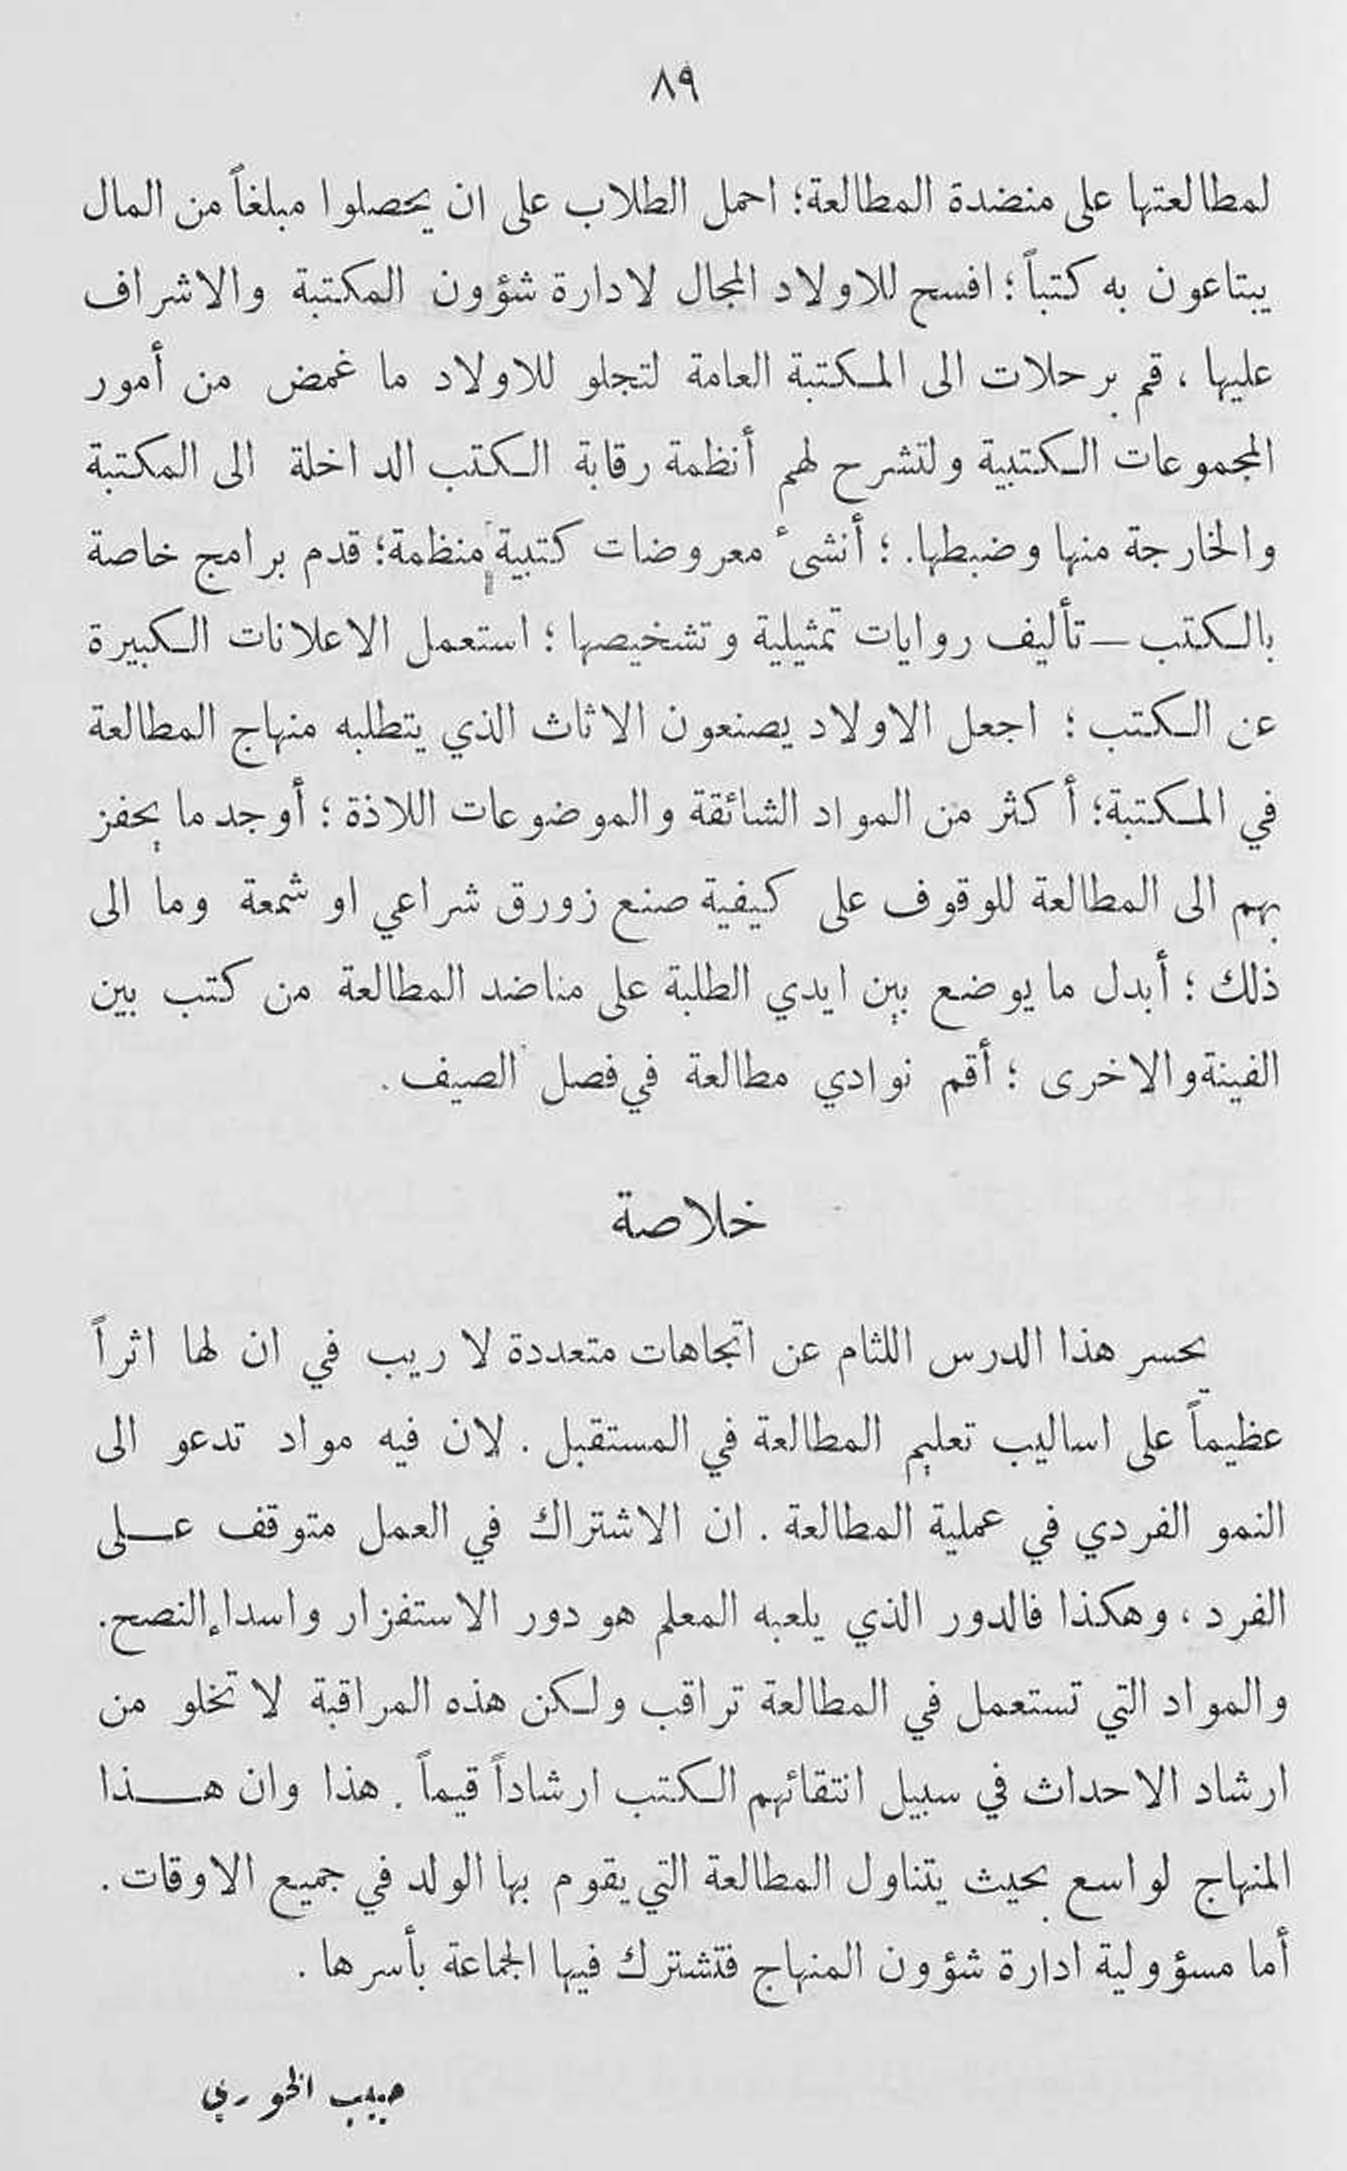 ٨٩
لمطالعتها على منضدة المطالعة؛ احمل الطلاب على ان يحصلوا مبلغاً من المال
يبتاعون به كتباً؛ افسح للاولاد المجال لادارة شؤون المكتبة والاشراف
عليها، قم برحلات الى المكتبة العامة لتجلو للاولاد ما غمض من أمور
المجموعات الكتبية ولتشرح لهم أنظمة رقابة الكتب الداخلة الى المكتبة
والخارجة منها وضبطها. ؛ أنشىء معروضات كتبية منظمة؛ قدم برامج خاصة
بالكتب – تأليف روايات تمثيلية وتشخيصها؛ استعمل الاعلانات الكبيرة
عن الكتب؛ اجعل الاولاد يصنعون الاثاث الذي يتطلبه منهاج المطالعة
في المكتبة؛ أكثر من المواد الشائقة والموضوعات اللاذة؛ أوجد ما يحفز
بهم الى المطالعة للوقوف على كيفية صنع زورق شراعي او شمعة وما الى
ذلك؛ أبدل ما يوضع بين ايدي الطلبة على مناضد المطالعة من كتب بين
الفينة والاخرى؛ أقم نوادي مطالعة في فصل الصيف.
خلاصة
يحسر هذا الدرس اللثام عن اتجاهات متعددة لا ريب في ان لها اثراً
عظيماً على اساليب تعليم المطالعة في المستقبل. لان فيه مواد تدعو الى
النمو الفردي في عملية المطالعة. ان الاشتراك في العمل متوقف عـلى
الفرد، وهكذا فالدور الذي يلعبه المعلم هو دور الاستفزار واسداء النصح.
والمواد التي تستعمل في المطالعة تراقب ولكن هذه المراقبة لا تخلو من
ارشاد الاحداث في سبيل انتقائهم الكتب ارشاداً قيماً. هذا وان هـذا
المنهاج لواسع بحيث يتناول المطالعة التي يقوم بها الولد في جميع الاوقات.
أما مسؤولية ادارة شؤون المنهاج فتشترك فيها الجماعة بأسرها.
حبيب الخوري